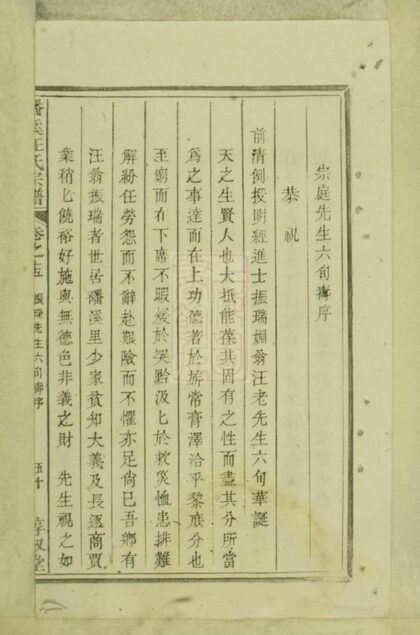 宗庭先生六旬壽序
恭祝
前清例授明經進士振瑞姻翁汪老先生六旬華誕
天之生賢人也大抵能葆其固有之性而盡其分所當
爲之事達而在上功德著於旂常膏澤洽乎黎庶分也
至窮而在下席不暇煖於突黔汲匕於救災恤患排難
解紛任勞怨而不辭赴艱險而不懼亦足尙已吾鄉有
汪翁振瑞者世居磻溪里少家貧知大義及長逐商賈
業稍匕饒裕好施與無德色非義之財 先生視之如
磻溪汪氏宗譜 卷之五 振瑞先生六旬壽序 五十 敘堂